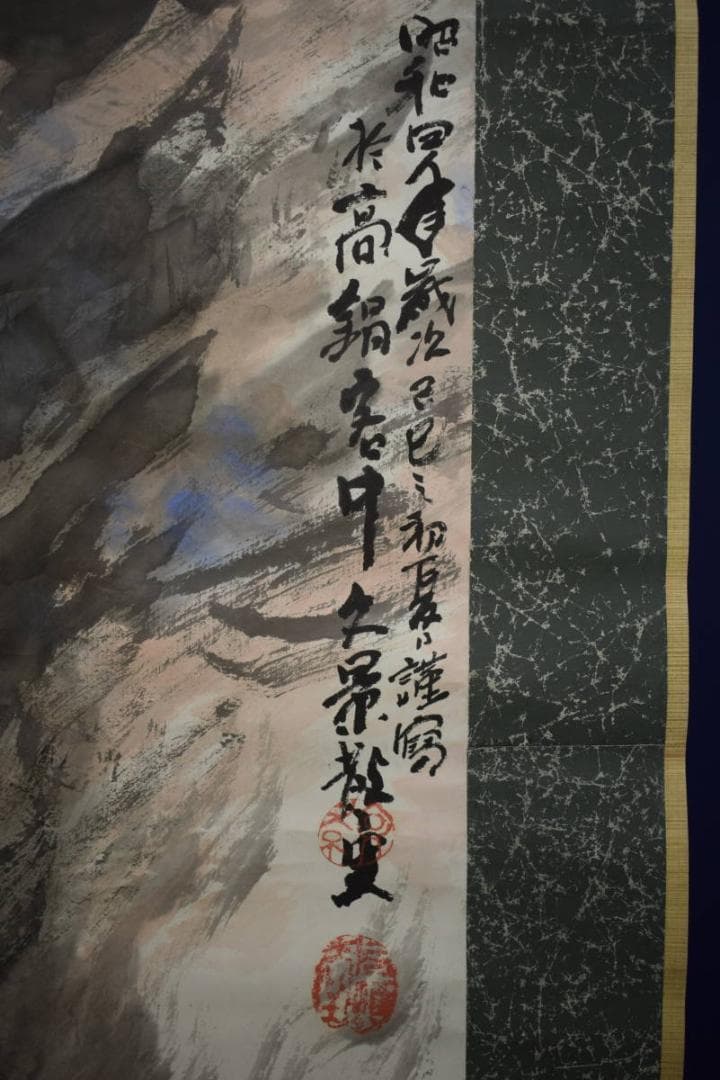 昭和四年歳次己巳之初夏日謹寫
於高鍋客中景散史